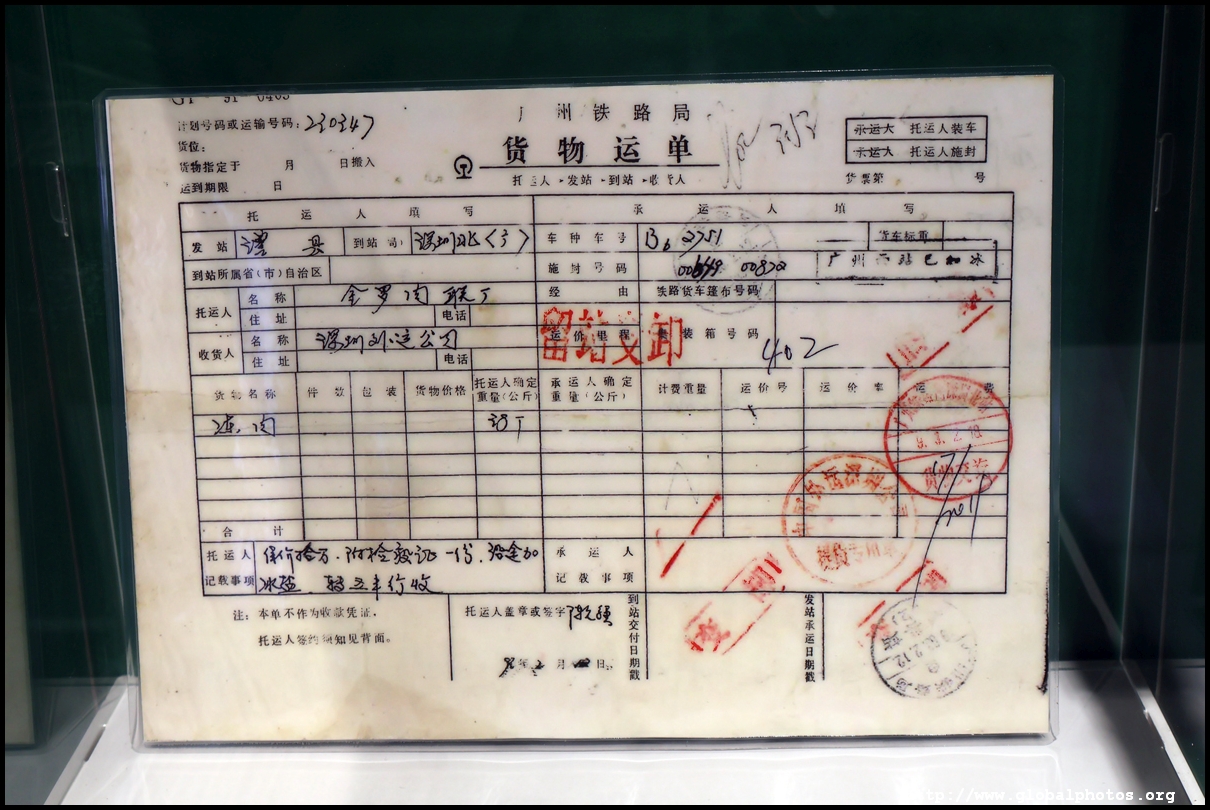 广州铁路局
计划号码或运输号码：230347
货位：
货物指定于 月 日搬入
运到期限 日
货物运单
托运人▸发站▸到站▸收货人
承运人 托运人装车
承运人 托运人施封
货票第 号
托运人填写
承运人填写
发站 县
到站(局) 深圳北(广)
车种车号 B6 2751
货车标重
到站所属省(市)自治区
施封号码
广州 站已加冰
托运人 名称 金罗肉联厂
住址 电话
经由
铁路货车篷布号码
收货人 名称 深圳 公司
住址 电话
运价里程
集装箱号码
留站 卸
402
货物名称 件数 包装 货物价格 托运人确定重量(公斤) 承运人确定重量(公斤) 计费重量 运价号 运价率 运费
冻肉
合计
托运人记载事项 保价拾万.附检 证一份.沿途加
冰盐.
承运人记载事项
注：本单不作为收款凭证.
托运人签约须知见背面。
托运人盖章或签字
年2月 日
到站交付日期戳
发站承运日期戳
93.2.19
货物交讫
提货专用章
93.2.12
http://www.globalphotos.org